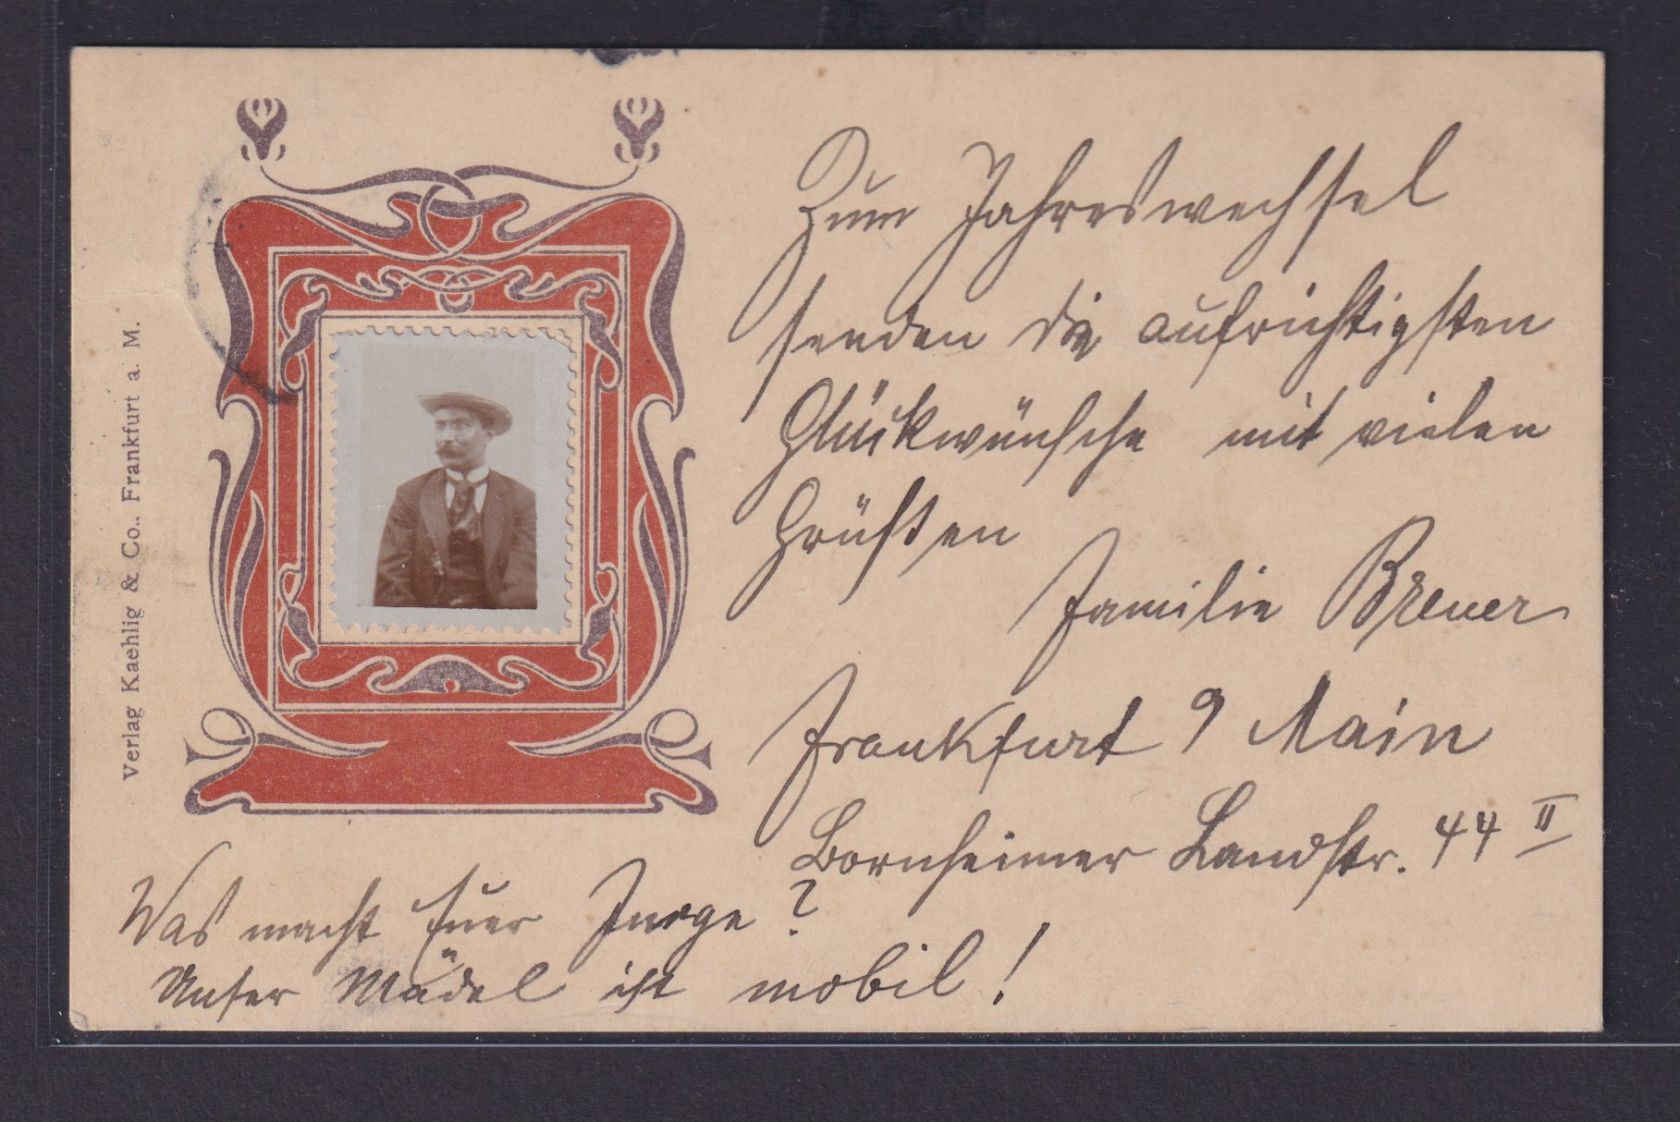 Verlag Kaehlig & Co., Frankfurt a. M.
Zum Jahreswechsel
senden die aufrichtigsten
Glückwünsche mit vielen
Grüßen
Familie Breuer
Frankfurt a Main
Bornheimer Landstr. 44 II
Was macht Euer Junge?
Unser Mädel ist mobil!